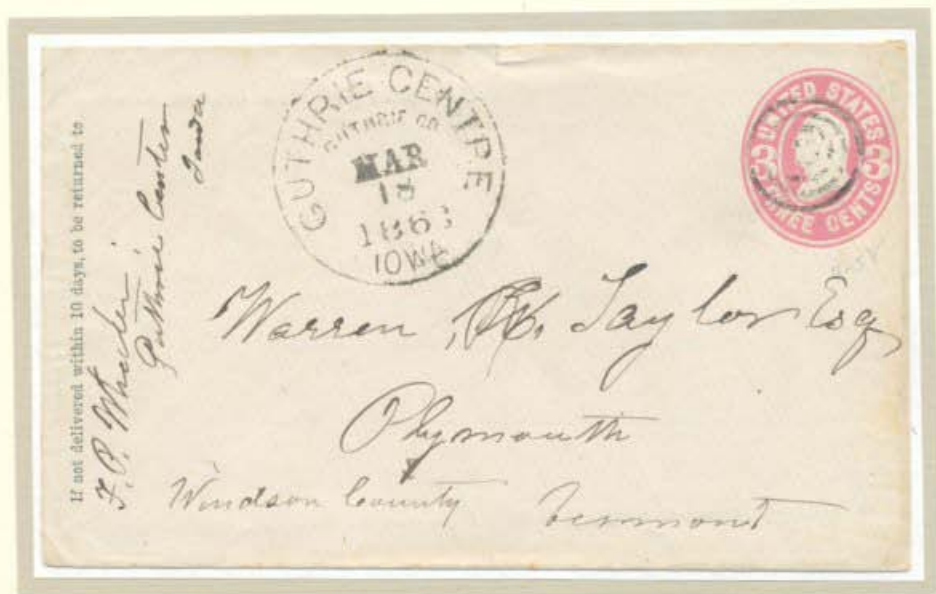 If not delivered within 10 days, to be returned to
F. P. Wheeler
Guthrie Center
Iowa
GUTHRIE CENTRE
GUTHRIE CO.
MAR
18
1868
IOWA
UNITED STATES
3 3
THREE CENTS
Warren H. Taylor Esq
Plymouth
Windsor County Vermont